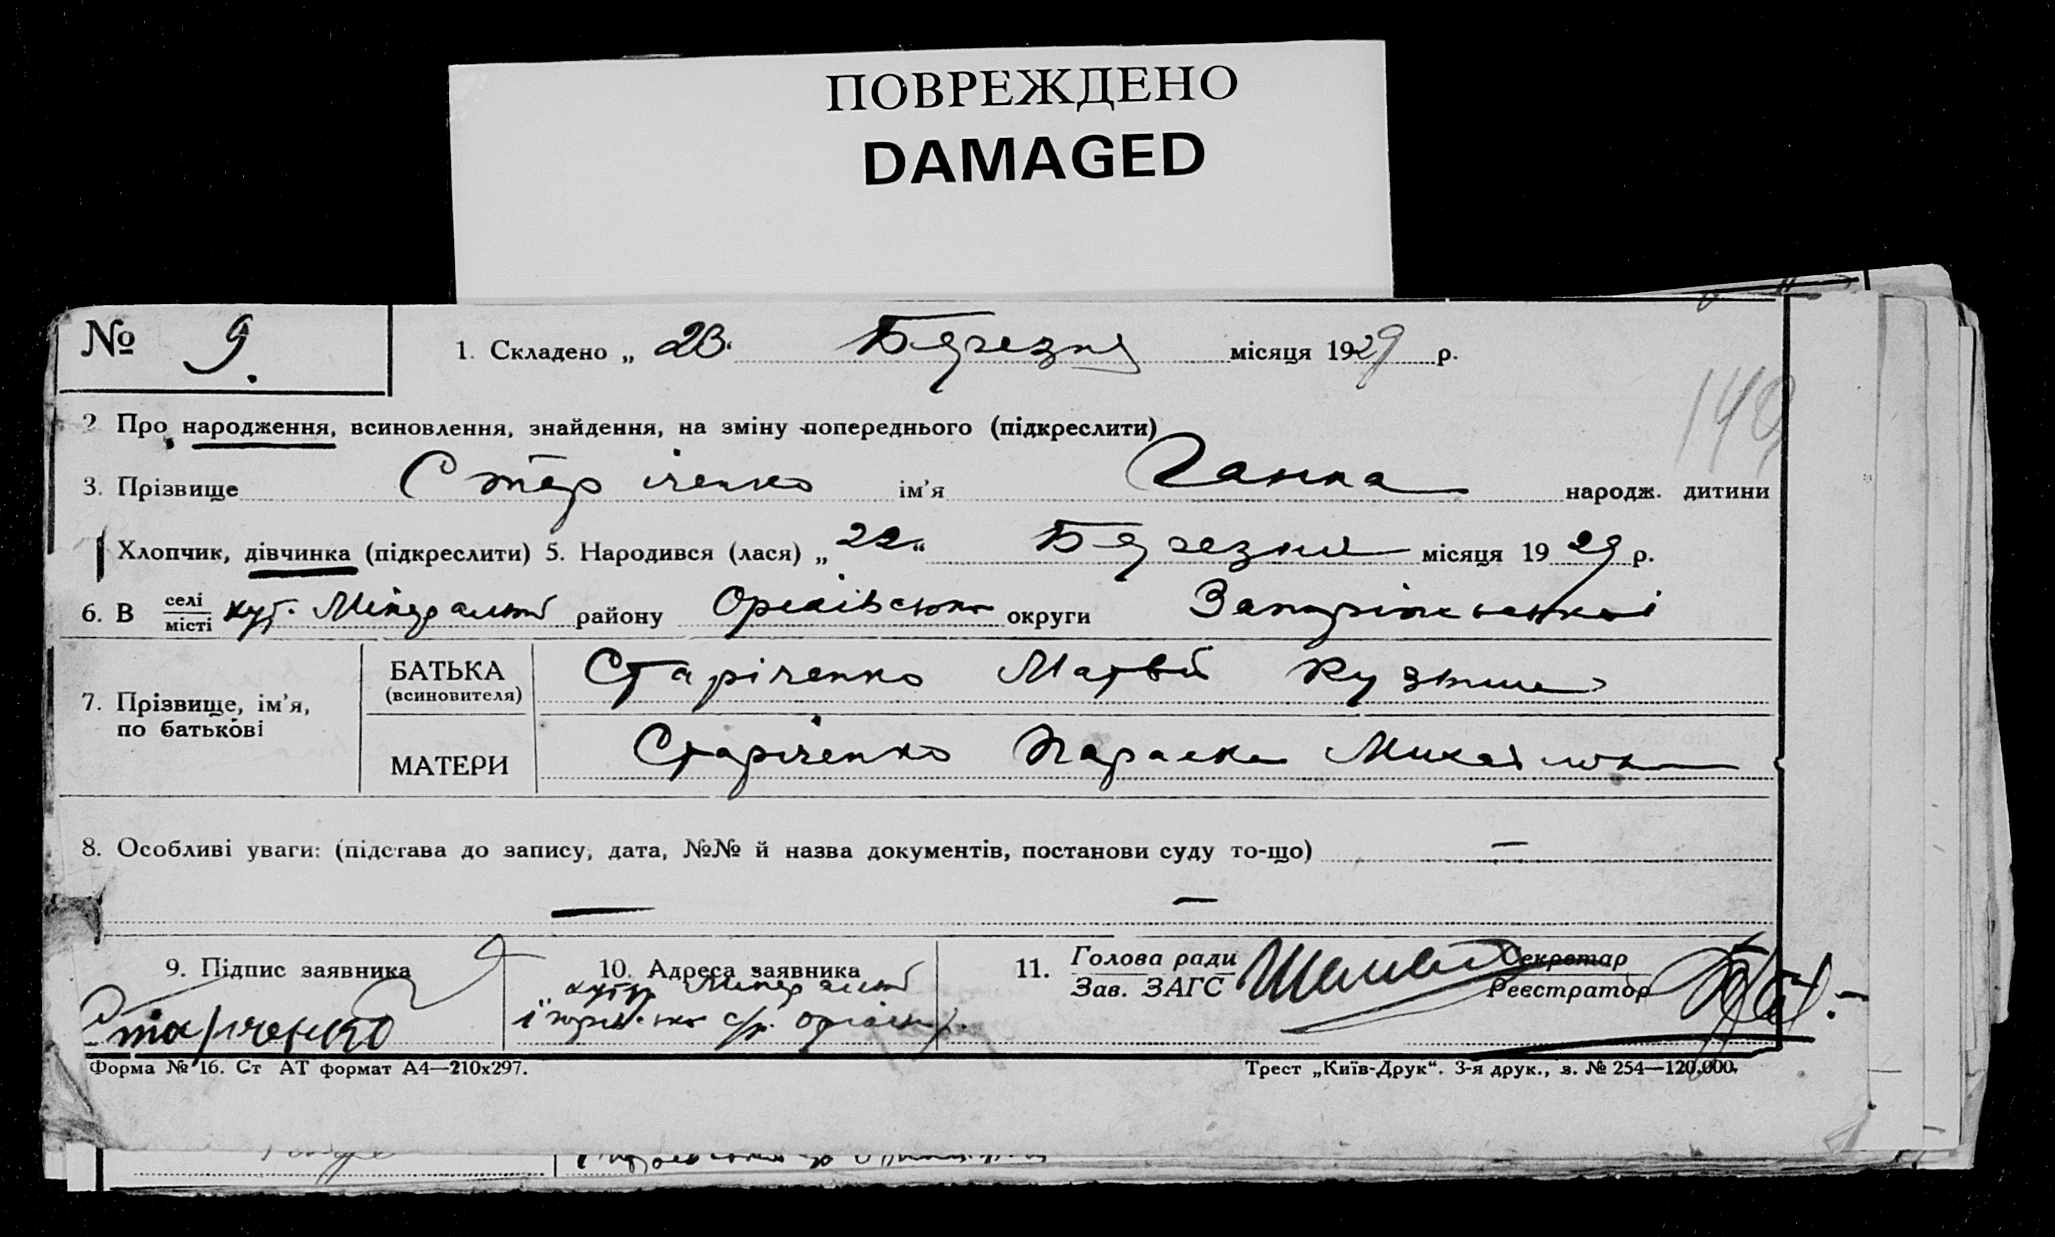 ПОВРЕЖДЕНО
DAMAGED
№ 9. 1. Складено „ 23. Березня місяця 1929 р.
149
2 Про народження, всиновлення, знайдення, на зміну попереднього (підкреслити)
3. Прізвище Старіченко ім'я Ганна народж. дитини
Хлопчик, дівчинка (підкреслити) 5. Народився (лася) „ 22 „ Березня місяця 1929 р.
6. В селі/місті хут. району Оріхівського округи Запоріжської
7. Прізвище, ім'я, по батькові
БАТЬКА (всиновителя) Старіченко Матвій
МАТЕРИ Старіченко Параска
8. Особливі уваги: (підстава до запису, дата, №№ й назва документів, постанови суду то-що) —
— —
9. Підпис заявника 10. Адреса заявника 11. Голова ради Секретар
Зав. ЗАГС Реєстратор
Старченко
Форма № 16. Ст АТ формат А4—210x297. Трест „Київ-Друк“. 3-я друк., з. № 254—120.000.